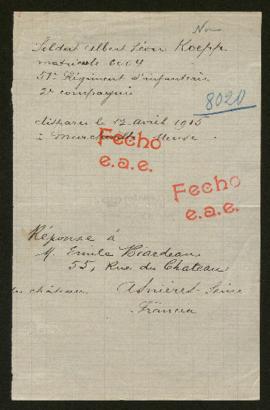 Non
Soldat Albert Léon Koepp
matricule
51e Régiment d'infanterie
2e compagnie
8020
disparu le 12 avril 1915
à Meuse
Fecho
e.a.e.
Fecho
e.a.e.
Réponse à
M. Emile
55, Rue du Chateau
du château
Asnières Seine
Francia